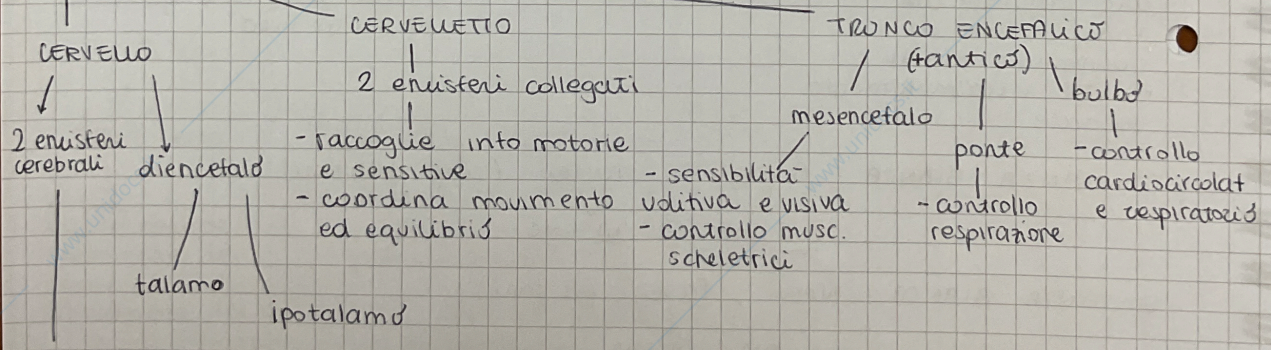 CERVELLO
2 emisferi
cerebrali
diencefalo
talamo
ipotalamo
CERVELLETTO
2 emisferi collegati
- raccoglie info motorie
e sensitive
- coordina movimento
ed equilibrio
TRONCO ENCEFALICO
(+antico)
mesencefalo
- sensibilità
uditiva e visiva
- controllo musc.
scheletrici
ponte
- controllo
respirazione
bulbo
- controllo
cardiocircolat
e respiratorio